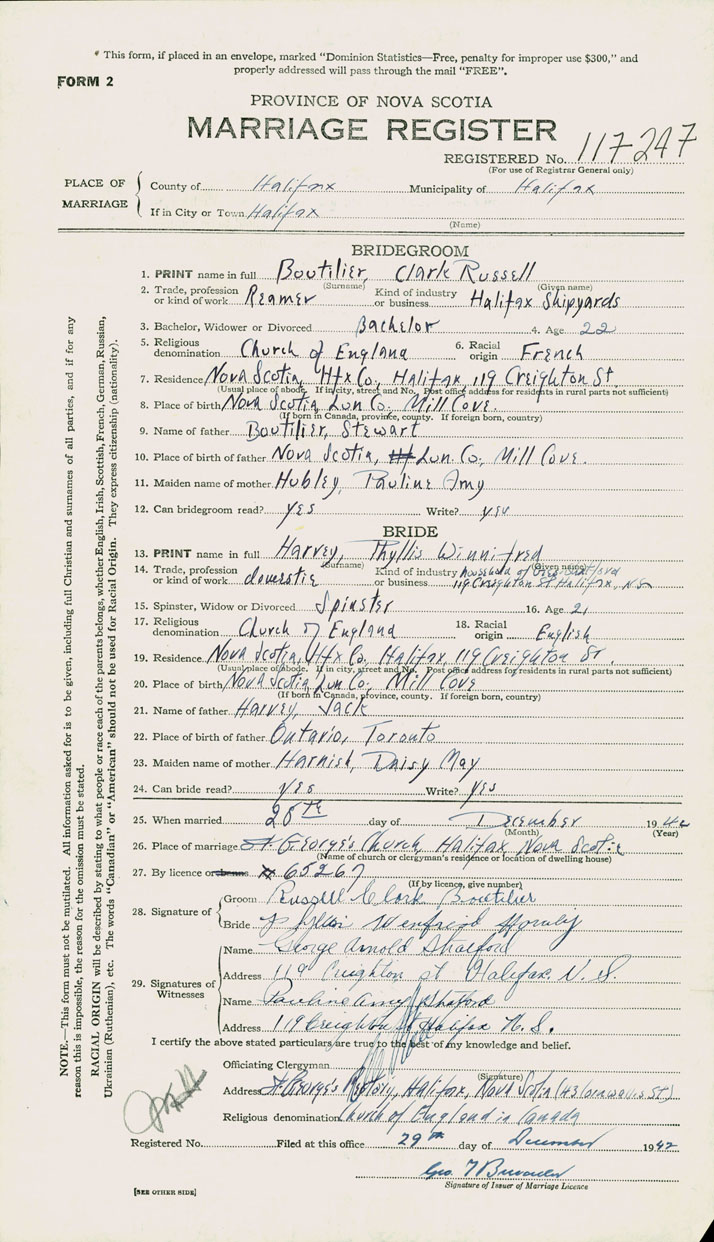 * This form, if placed in an envelope, marked "Dominion Statistics—Free, penalty for improper use $300," and
properly addressed will pass through the mail "FREE".
FORM 2
PROVINCE OF NOVA SCOTIA
MARRIAGE REGISTER
REGISTERED No. 117247
(For use of Registrar General only)
PLACE OF MARRIAGE
County of Halifax Municipality of Halifax
If in City or Town Halifax
(Name)
BRIDEGROOM
1. PRINT name in full Boutilier, Clark Russell
(Surname) (Given name)
2. Trade, profession or kind of work Reamer Kind of industry or business Halifax Shipyards
3. Bachelor, Widower or Divorced Bachelor 4. Age 22
5. Religious denomination Church of England 6. Racial origin French
7. Residence Nova Scotia, Hfx Co., Halifax, 119 Creighton St.
(Usual place of abode. If in city, street and No. Post office address for residents in rural parts not sufficient)
8. Place of birth Nova Scotia, Lun Co. Mill Cove.
(If born in Canada, province, county. If foreign born, country)
9. Name of father Boutilier, Stewart
10. Place of birth of father Nova Scotia, Lun. Co., Mill Cove.
11. Maiden name of mother Hubley, Pauline Amy
12. Can bridegroom read? yes Write? yes
BRIDE
13. PRINT name in full Harvey, Phyllis Winnifred
(Surname) (Given name)
14. Trade, profession or kind of work domestic Kind of industry or business household of
119 Creighton St Halifax, N.S.
15. Spinster, Widow or Divorced Spinster 16. Age 21
17. Religious denomination Church of England 18. Racial origin English
19. Residence Nova Scotia, Hfx Co, Halifax, 119 Creighton St.
(Usual place of abode. If in city, street and No. Post office address for residents in rural parts not sufficient)
20. Place of birth Nova Scotia Lun Co. Mill Cove
(If born in Canada, province, county. If foreign born, country)
21. Name of father Harvey, Jack
22. Place of birth of father Ontario, Toronto
23. Maiden name of mother Harnish, Daisy May
24. Can bride read? yes Write? yes
25. When married day of December 1942
(Month) (Year)
26. Place of marriage St. George's Church, Halifax, Nova Scotia
(Name of church or clergyman's residence or location of dwelling house)
27. By licence or banns 65267
(If by licence, give number)
28. Signature of
Groom Russell Clark Boutilier
Bride
29. Signatures of Witnesses
Name George Arnold
Address 119 Creighton St Halifax, N.S.
Name Pauline Amy
Address 119 Creighton St Halifax N.S.
I certify the above stated particulars are true to the best of my knowledge and belief.
Officiating Clergyman
(Signature)
Address St. George's Rectory, Halifax, Nova Scotia (43 Cornwallis St)
Religious denomination Church of England in Canada
Registered No. Filed at this office 29th day of December 1942
Signature of Issuer of Marriage Licence
[SEE OTHER SIDE]
NOTE.—This form must not be mutilated. All information asked for is to be given, including full Christian and surnames of all parties, and if for any
reason this is impossible, the reason for the omission must be stated.
RACIAL ORIGIN will be described by stating to what people or race each of the parents belongs, whether English, Irish, Scottish, French, German, Russian,
Ukrainian (Ruthenian), etc. The words "Canadian" or "American" should not be used for Racial Origin. They express citizenship (nationality).